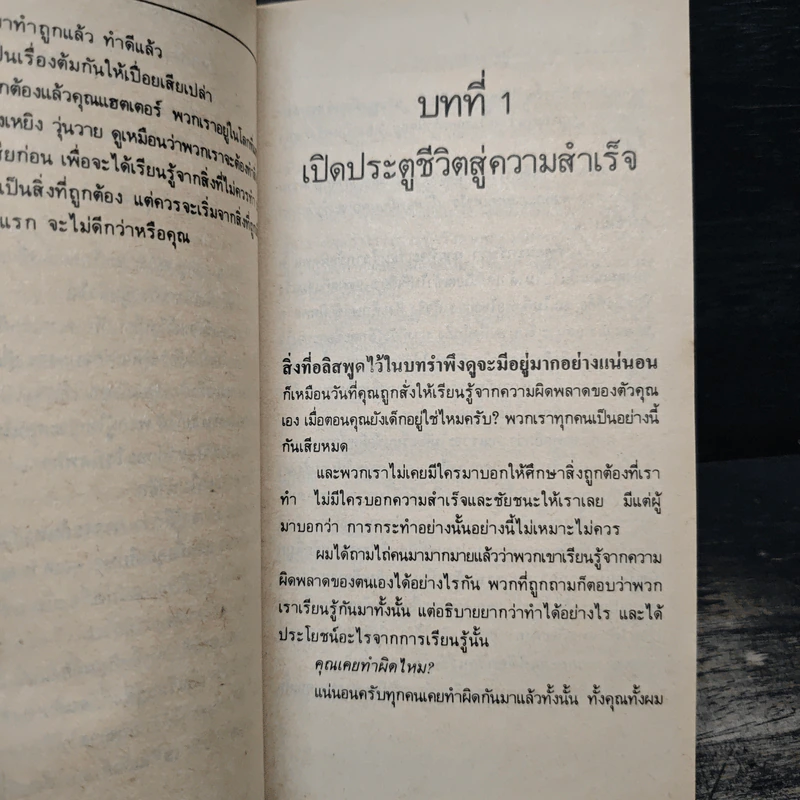 าทำถูกแล้ว ทำดีแล้ว
ป็นเรื่องต้มกันให้เปื่อยเสียเปล่า
กต้องแล้วคุณแฮตเตอร์ พวกเราอยู่ในโลก
งเหยิง วุ่นวาย ดูเหมือนว่าพวกเราจะต้อง
สียก่อน เพื่อจะได้เรียนรู้จากสิ่งที่ไม่ควรทำ
เป็นสิ่งที่ถูกต้อง แต่ควรจะเริ่มจากสิ่งที่ถูก
แรก จะไม่ดีกว่าหรือคุณ
บทที่ 1
เปิดประตูชีวิตสู่ความสำเร็จ
สิ่งที่อลิสพูดไว้ในบทรำพึงดูจะมีอยู่มากอย่างแน่นอน
ก็เหมือนวันที่คุณถูกสั่งให้เรียนรู้จากความผิดพลาดของตัวคุณ
เอง เมื่อตอนคุณยังเด็กอยู่ใช่ไหมครับ? พวกเราทุกคนเป็นอย่างนี้
กันเสียหมด
และพวกเราไม่เคยมีใครมาบอกให้ศึกษาสิ่งถูกต้องที่เรา
ทำ ไม่มีใครบอกความสำเร็จและชัยชนะให้เราเลย มีแต่ผู้
มาบอกว่า การกระทำอย่างนั้นอย่างนี้ไม่เหมาะไม่ควร
ผมได้ถามไถ่คนมามากมายแล้วว่าพวกเขาเรียนรู้จากความ
ผิดพลาดของตนเองได้อย่างไรกัน พวกที่ถูกถามก็ตอบว่าพวก
เราเรียนรู้กันมาทั้งนั้น แต่อธิบายยากว่าทำได้อย่างไร และได้
ประโยชน์อะไรจากการเรียนรู้นั้น
คุณเคยทำผิดไหม?
แน่นอนครับทุกคนเคยทำผิดกันมาแล้วทั้งนั้น ทั้งคุณทั้งผม